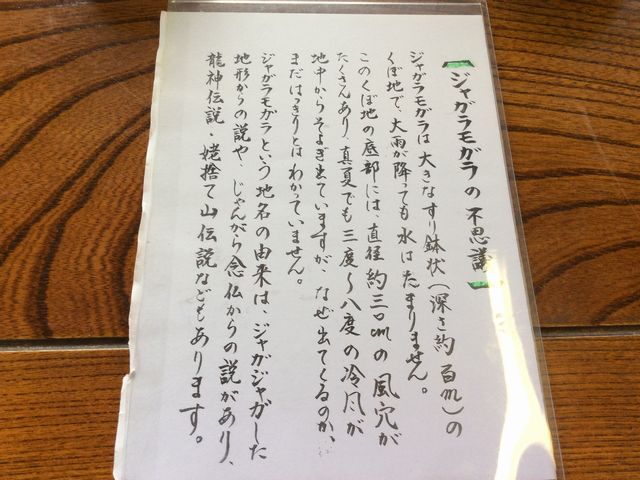 ジャガラモガラの不思議
ジャガラモガラは大きなすり鉢状(深さ約百m)の
くぼ地で、大雨が降っても水はたまりません。
このくぼ地の底部には、直径約三〇cmの風穴が
たくさんあり、真夏でも三度〜八度の冷風が
地中からそよぎ出ていますが、なぜ出てくるのか、
まだはっきりとはわかっていません。
ジャガラモガラという地名の由来は、ジャガジャガした
地形からの説や、じゃんがら念仏からの説があり、
龍神伝説・姥捨て山伝説などもあります。